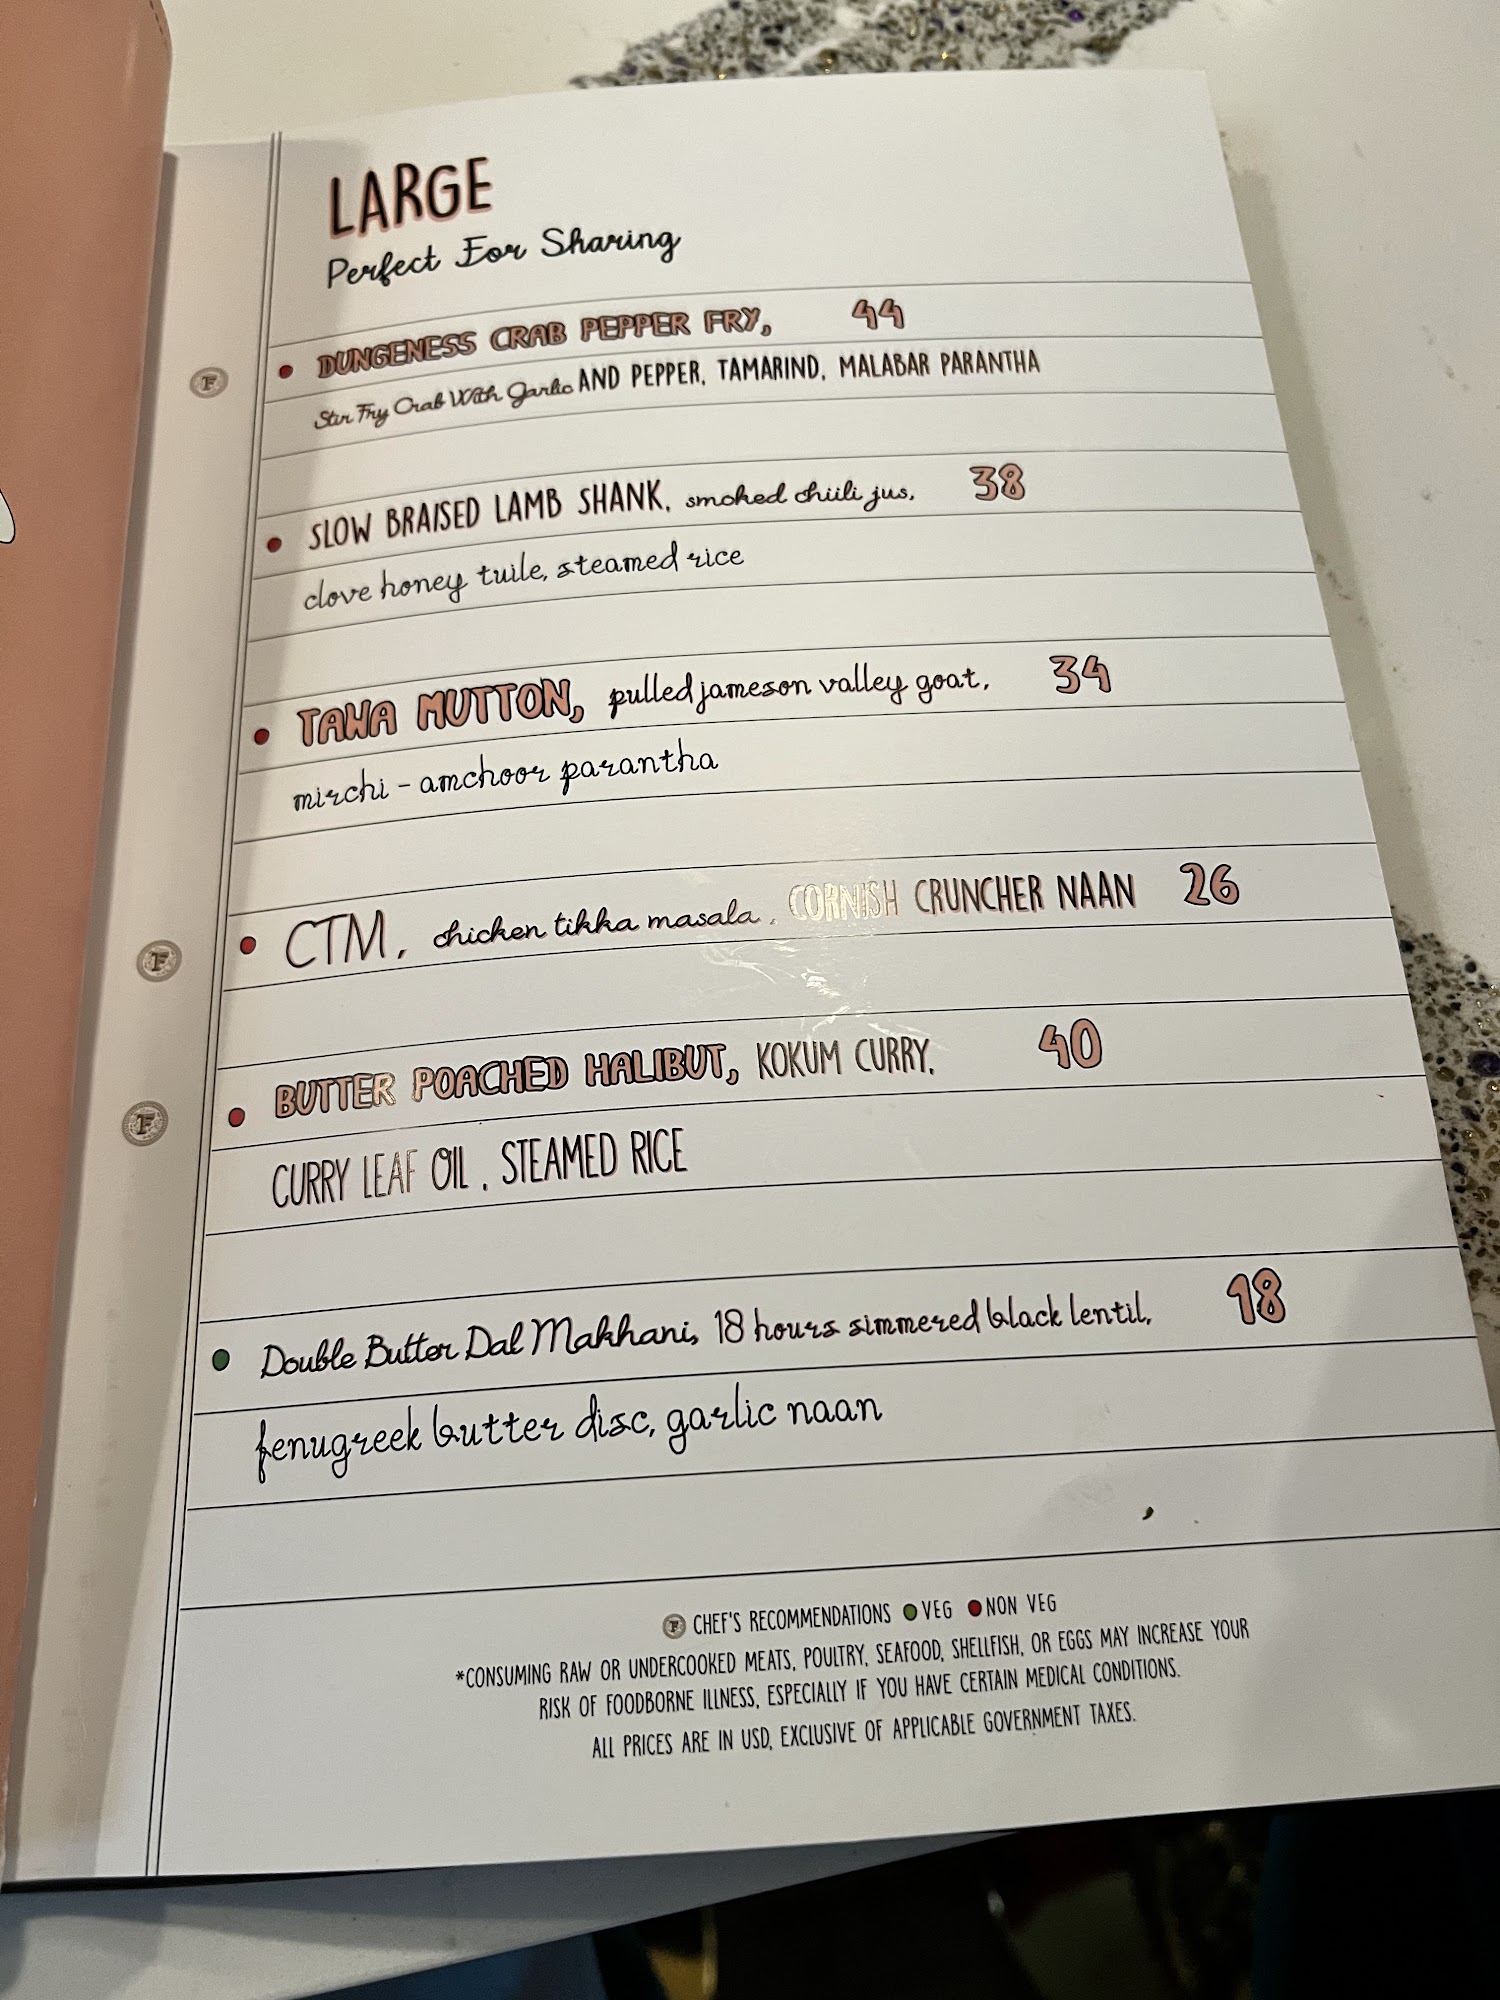 LARGE
Perfect For Sharing
DUNGENESS CRAB PEPPER FRY, 44
Stir Fry Crab With Garlic AND PEPPER, TAMARIND, MALABAR PARANTHA
SLOW BRAISED LAMB SHANK, smoked chiili jus, 38
clove honey tuile, steamed rice
TAWA MUTTON, pulled jameson valley goat, 34
mirchi - amchoor parantha
CTM, chicken tikka masala, CORNISH CRUNCHER NAAN 26
BUTTER POACHED HALIBUT, KOKUM CURRY, 40
CURRY LEAF OIL, STEAMED RICE
Double Butter Dal Makhani, 18 hours simmered black lentil, 18
fenugreek butter disc, garlic naan
F CHEF'S RECOMMENDATIONS VEG NON VEG
*CONSUMING RAW OR UNDERCOOKED MEATS, POULTRY, SEAFOOD, SHELLFISH, OR EGGS MAY INCREASE YOUR
RISK OF FOODBORNE ILLNESS, ESPECIALLY IF YOU HAVE CERTAIN MEDICAL CONDITIONS.
ALL PRICES ARE IN USD, EXCLUSIVE OF APPLICABLE GOVERNMENT TAXES.
F
F
F